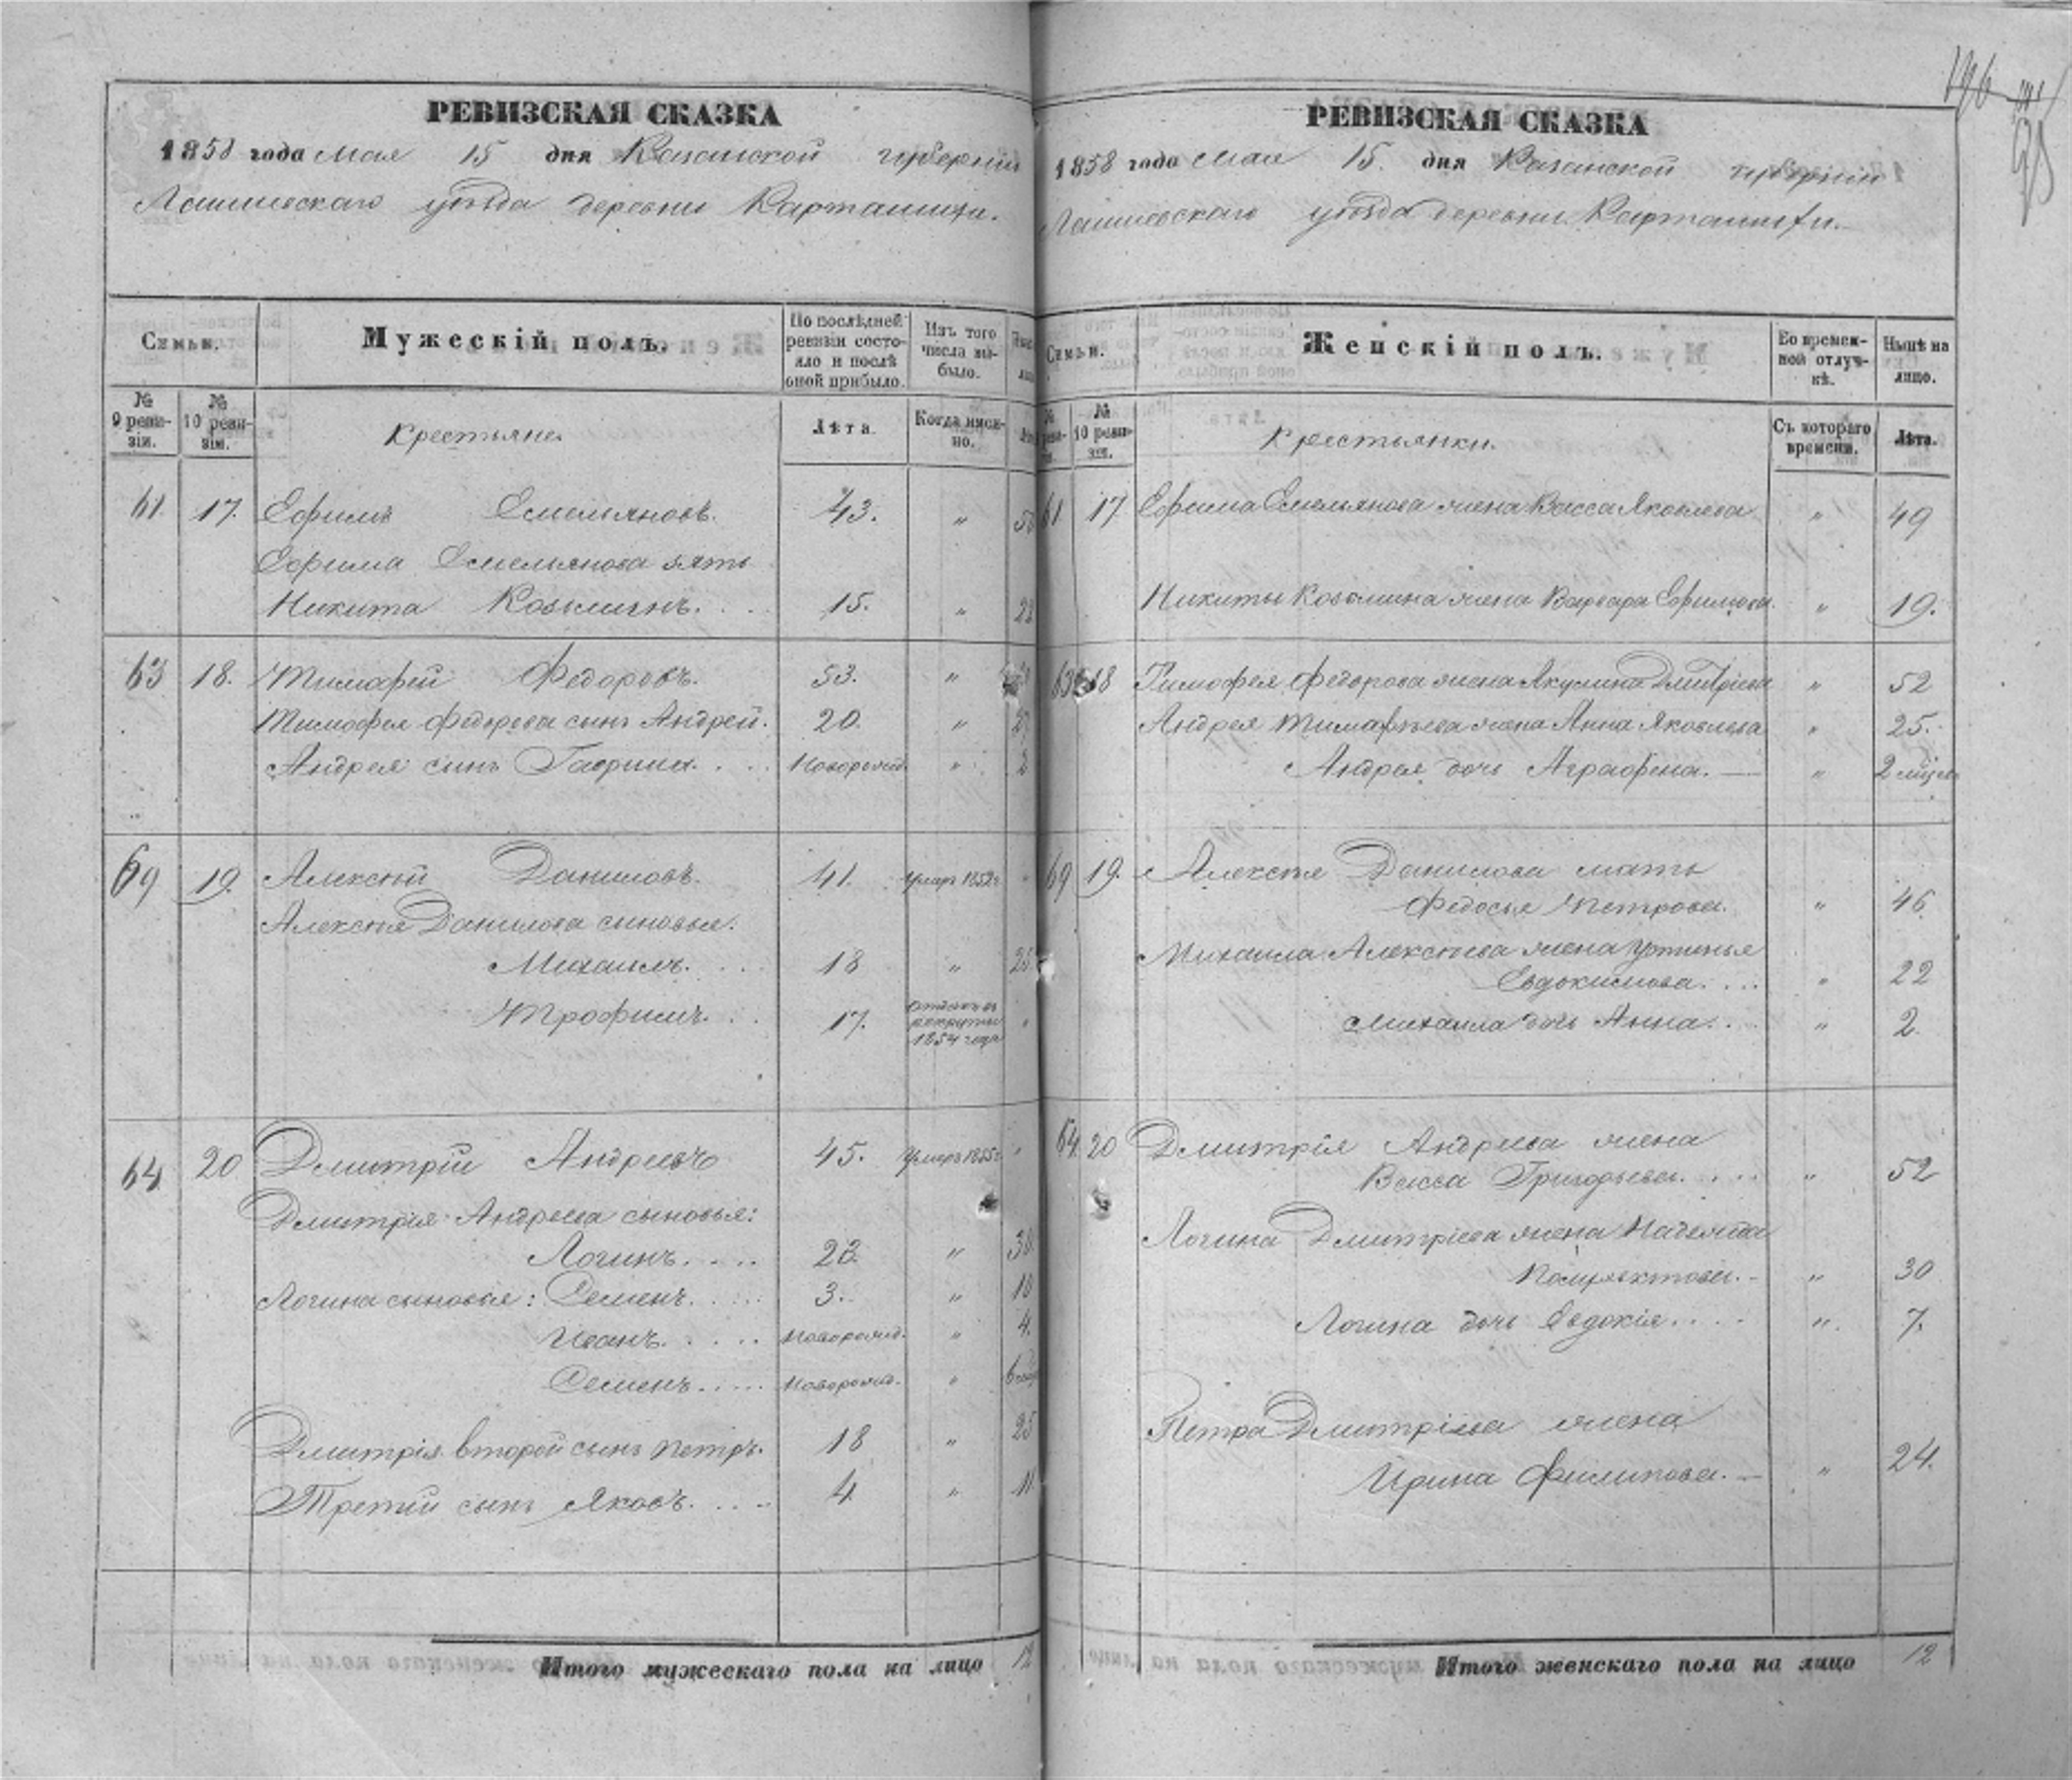 РЕВИЗСКАЯ СКАЗКА
1858 года Мая 15 дня Казанской губерніи
Лаишевскаго уѣзда деревни
Семьи.
Мужескій полъ.
По послѣдней ревизіи состояло и послѣ оной прибыло.
Изъ того числа выбыло.
№ 9 ревизіи.
№ 10 ревизіи.
Крестьяне
Лѣта
Когда именно.
61. 17. Ефимъ Емельяновъ. 43. „
Ефима Емельянова зять
Никита Козьминъ. 15. „
63 18. Тимафей Федоровъ. 53. „
Тимофея Федорова сынъ Андрей. 20. „
Андрея сынъ Гаврила. Новорожд. „
69 19. Алексѣй Даниловъ. 41. умеръ 1852 г
Алексѣя Данилова сыновья:
Михаилъ. 18 „ 25
Трофимъ. 17. отданъ въ рекруты 1854 года „
64 20 Дмитрій Андреевъ 45. Умеръ 1855 г „
Дмитрія Андреева сыновья:
Логинъ. 23. „ 30
Логина сыновья: Семенъ. 3. „ 10
Иванъ. Новорожд. „ 4.
Семенъ. Новорожд. „
Дмитрія второй сынъ Петръ. 18 „ 25
Третій сынъ Яковъ. 4 „ 11
Итого мужескаго пола на лицо 12
РЕВИЗСКАЯ СКАЗКА
1858 года Мая 15. дня Казанской губерніи
Лаишевскаго уѣзда деревни
Семьи.
Женскій полъ.
Во временной отлучкѣ.
Нынѣ на лицо.
№ 10 ревизіи.
Крестьянки.
Съ котораго времени.
Лѣта.
61 17 Ефима Емельянова жена Васса Яковлева „ 49
Никиты Козьмина жена Варвара Ефимова „ 19.
63 18 Тимофея Федорова жена Акулина Дмитріева „ 52
Андрея Тимафѣева жена Анна Яковлева „ 25.
Андрея дочь Аграфена. „ 2
69 19. Алексѣя Данилова мать
Федосья Петрова. „ 46
Михаила Алексѣева жена Устинья
Евдокимова. „ 22
Михаила дочь Анна. „ 2
64. 20 Дмитрія Андреева жена
Васса Григорьева. „ 52
Логина Дмитріева жена Надежда
„ 30
Логина дочь Евдокія. „ 7.
Петра Дмитріева жена
Ирина Филипова. „ 24.
Итого женскаго пола на лицо 12